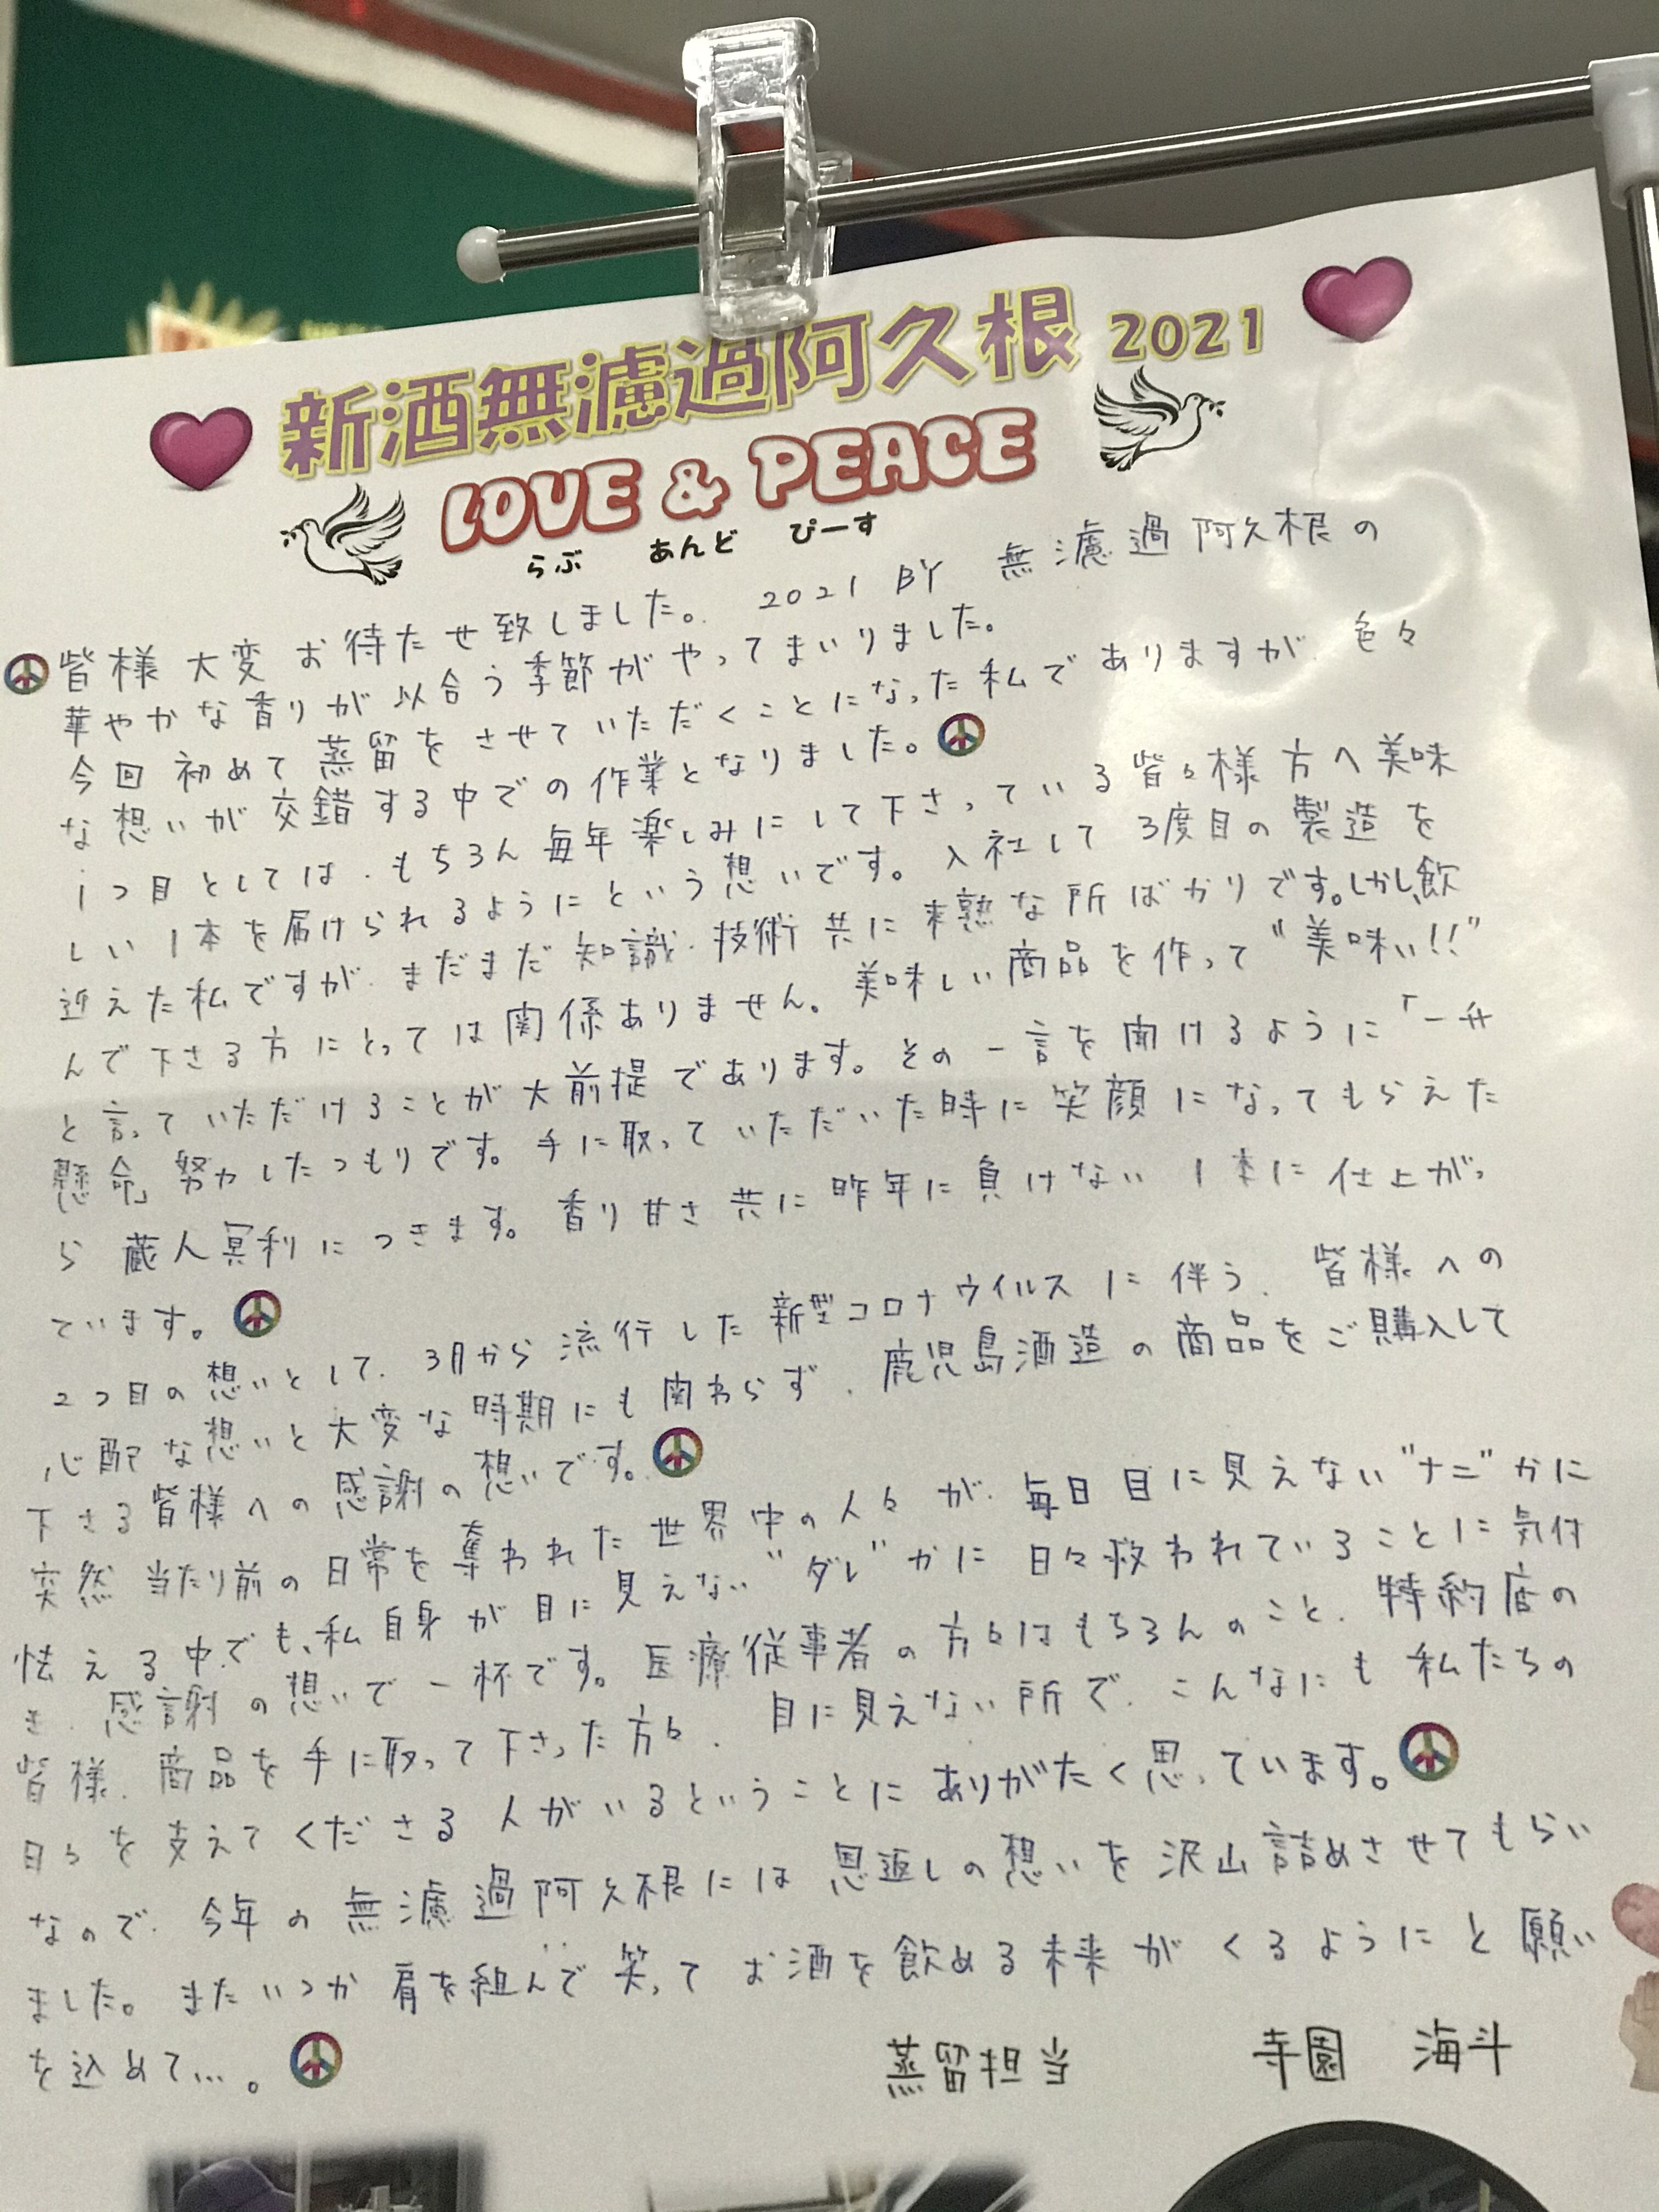 新酒無濾過阿久根 2021
LOVE & PEACE
らぶ あんど ぴーす
皆様大変お待たせ致しました。2021BY 無濾過阿久根の
華やかな香りが似合う季節がやってまいりました。
今回初めて蒸留をさせていただくことになった私でありますが、色々
な想いが交錯する中での作業となりました。
1つ目としては、もちろん毎年楽しみにして下さっている皆々様方へ美味
しい1本を届けられるようにという想いです。入社して3度目の製造を
迎えた私ですが、まだまだ知識・技術共に未熟な所ばかりです。しかし、飲
んで下さる方にとっては関係ありません。美味しい商品を作って"美味い!!"
と言っていただけることが大前提であります。その一言を聞けるように「一生
懸命」努力したつもりです。手に取っていただいた時に笑顔になってもらえた
ら蔵人冥利につきます。香り甘さ共に昨年に負けない1本に仕上がっ
ています。
2つ目の想いとして、3月から流行した新型コロナウイルスに伴う、皆様への
心配な想いと大変な時期にも関わらず、鹿児島酒造の商品をご購入して
下さる皆様への感謝の想いです。
突然当たり前の日常を奪われた世界中の人々が、毎日目に見えない"ナニ"かに
怯える中でも、私自身が目に見えない"ダレ"かに日々救われていることに気付
き、感謝の想いで一杯です。医療従事者の方々はもちろんのこと、特約店の
皆様、商品を手に取って下さった方々、目に見えない所で、こんなにも私たちの
日々を支えてくださる人がいるということにありがたく思っています。
なので、今年の無濾過阿久根には恩返しの想いを沢山詰めさせてもらい
ました。またいつか肩を組んで笑ってお酒を飲める未来がくるようにと願い
を込めて…。
蒸留担当 寺園 海斗